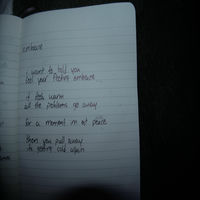 embrace
i want to hold you
feel your
embrace
it feels warm
all the problems go away
for a moment im at peace
then you pull away
cold again